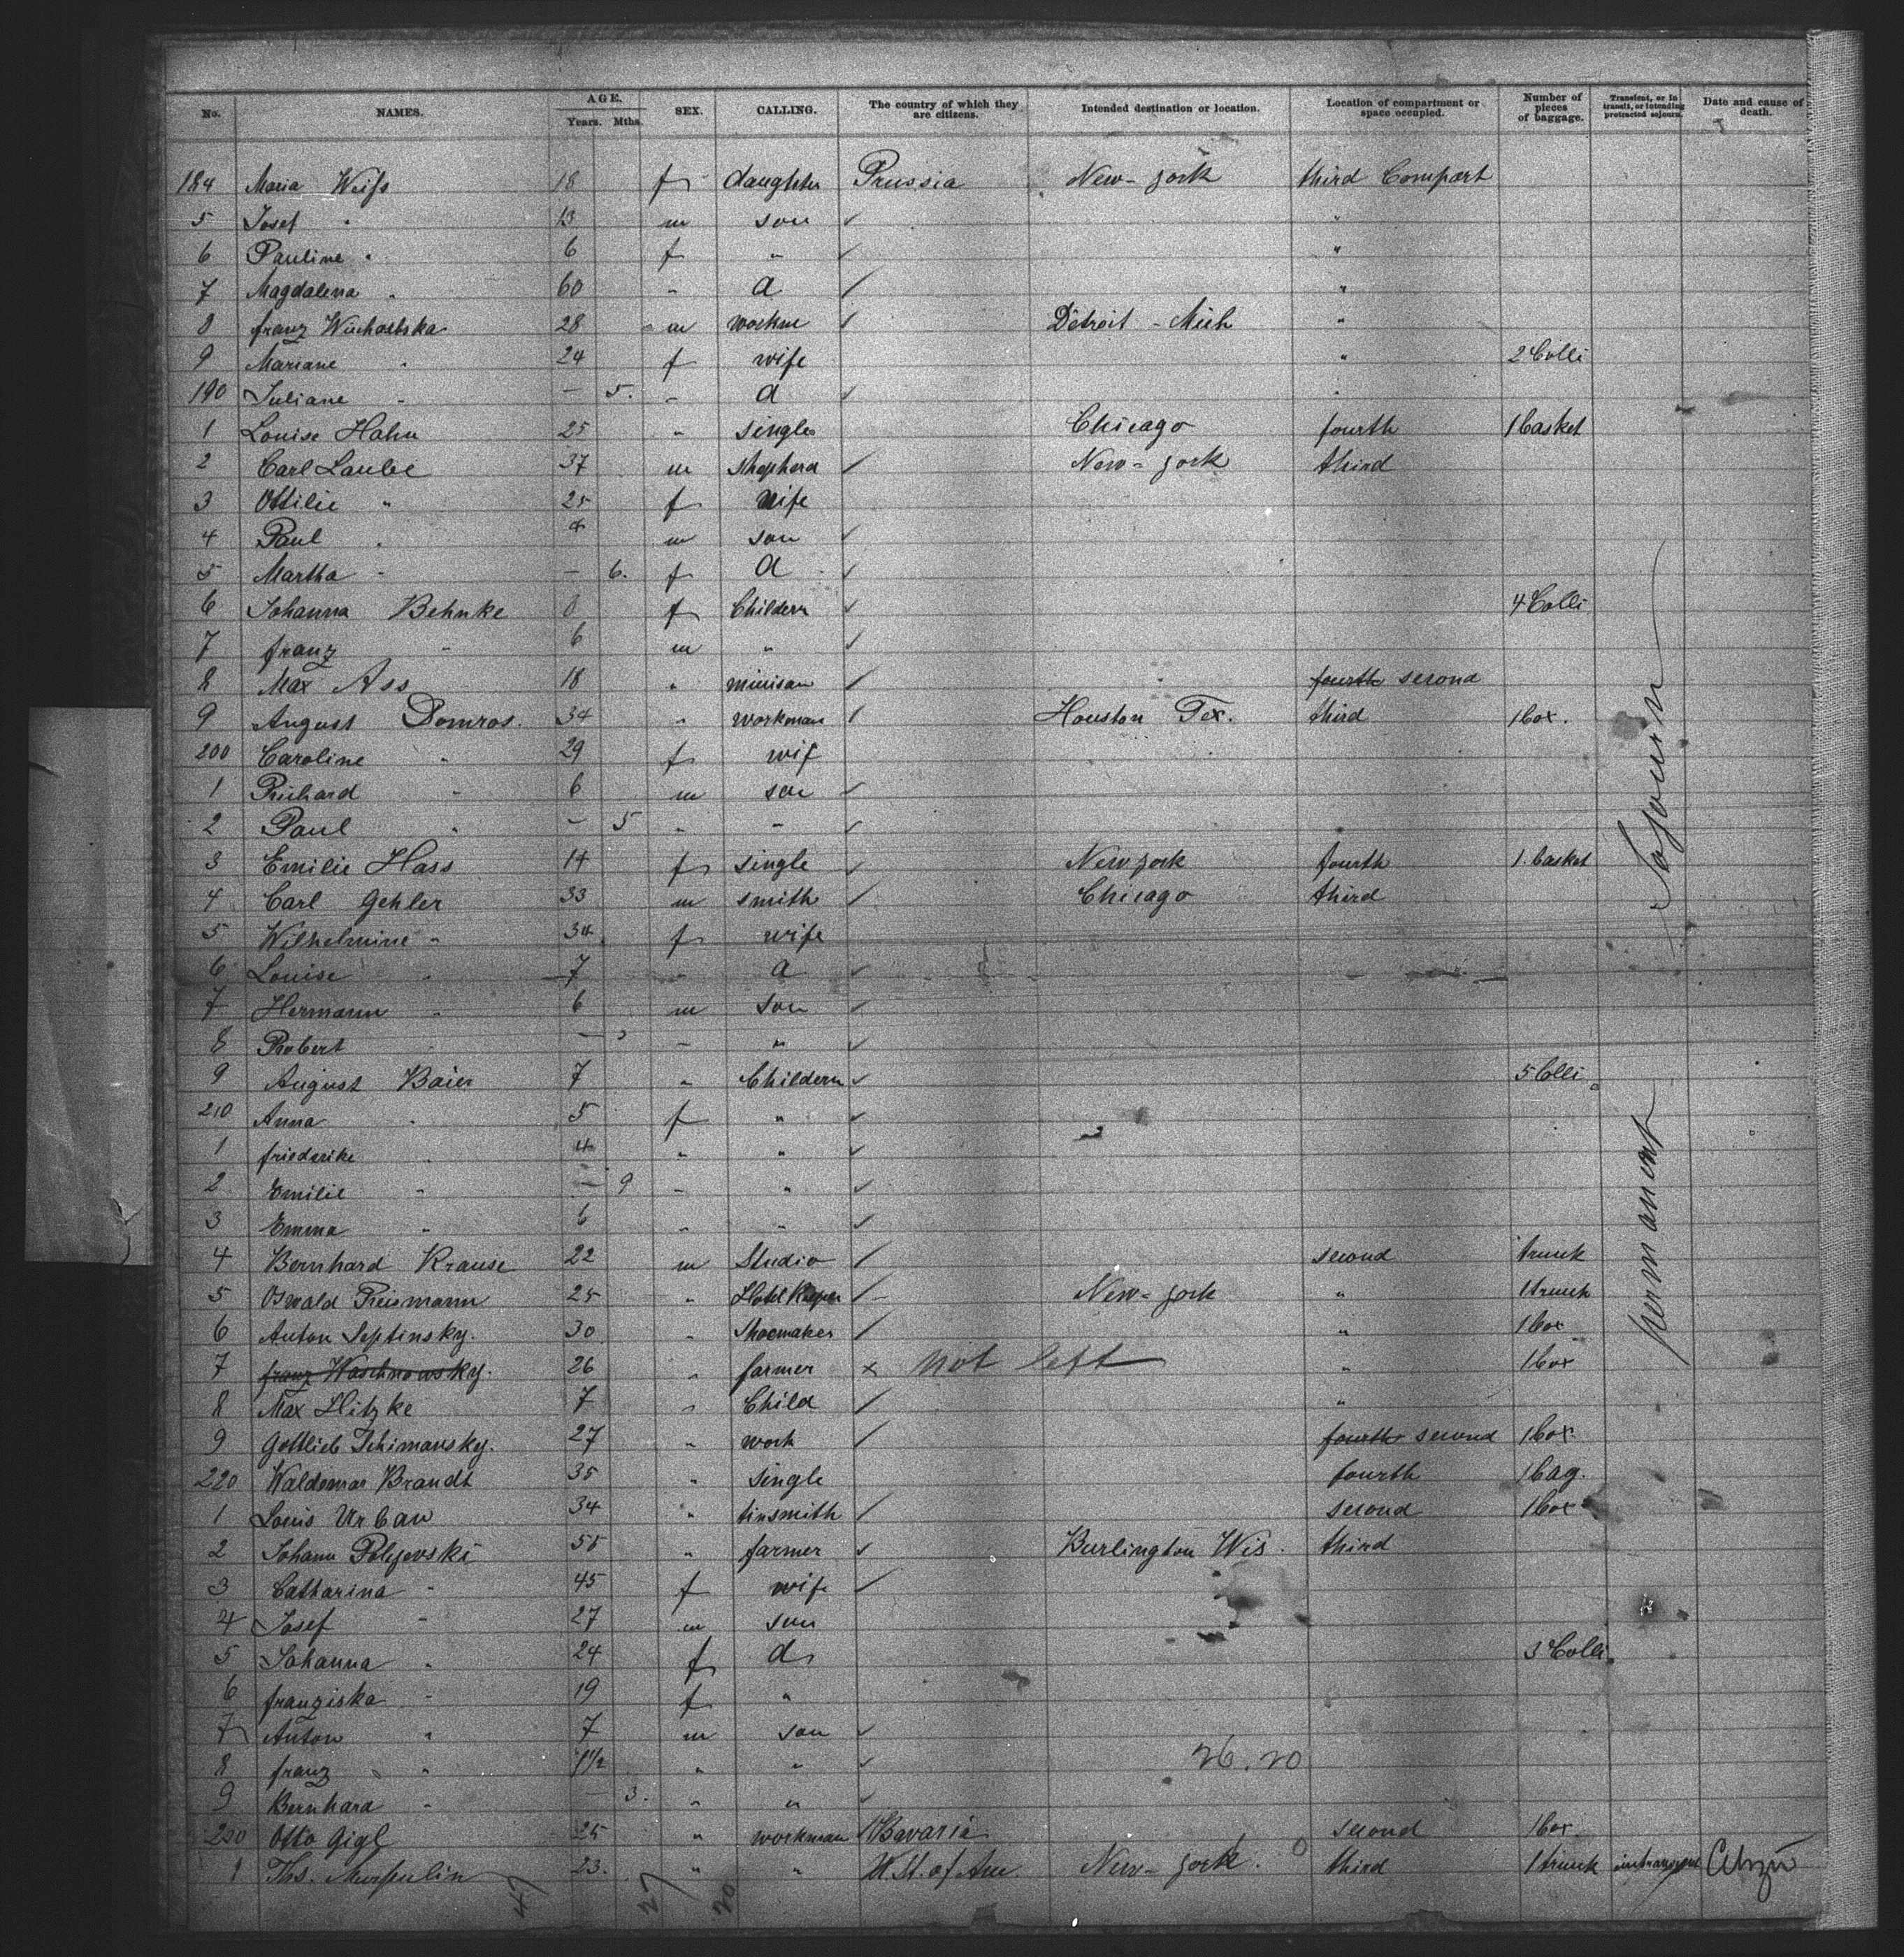 No. NAMES. AGE. Years. Mths. SEX. CALLING. The country of which they are citizens. Intended destination or location. Location of compartment or space occupied. Number of pieces of baggage. Transient, or in transit, or intending protracted sojourn. Date and cause of death.
184 Maria Weiss 18 f daughter Prussia New-york third Compart
5 Josef " 13 m son "
6 Pauline " 6 f " "
7 Magdalena " 60 " d "
8 franz 28 m Detroit - Mich "
9 Mariane " 24 f wife " 2 Colli
190 Juliane " - 5. " d "
1 Louise Hahn 25 " single Chicago fourth 1 basket
2 Carl Laube 37 m Shepherd New-york third
3 Ottilie " 25 f wife
4 Paul " m son
5 Martha " - 6. f d
6 Johanna Behnke f Childern 4 Colli
7 franz " 6 m "
8 Max Ass 18 " " fourth second
9 August Domros. 34 " workman Houston Tex. third 1 box.
200 Caroline " 29 f wif
1 Richard " 6 m son
2 Paul " - 5 " "
3 Emilie Hass 14 f single New york fourth 1 basket
4 Carl Gehler 33 m smith Chicago third
5 Wilhelmine " 34 f wife
6 Louise " 7 " d
7 Hermann " 6 m son
8 Robert " - " "
9 August Baier 7 " Childern 5 Colli
210 Anna " 5 f "
1 friederike " 4 " "
2 Emilie " - 9 " "
3 Emma " 6 " "
4 Bernhard Krause 22 m Studio second trunk
5 Oswald Reismann 25 " Hotel Keeper New-york " 1 trunk
6 Anton Leptinsky. 30 " Shoemaker " 1 box
7 franz Woschnowsky. 26 " farmer x not left " 1 box
8 Max Hitzke 7 " Child "
9 Gottlieb Schimansky. 27 " work fourth second 1 box
220 Waldemar Brandt 35 " single fourth 1 bag.
1 Louis Urban 34 " tinsmith second 1 box
2 Johann 55 " farmer Burlington Wis. third
3 Catharina " 45 f wife
4 Josef " 27 m son
5 Johanna " 24 f d 3 Colli
6 franziska " 19 f "
7 Anton " 7 m son
8 franz " " "
9 Bernhard " - 3. " "
230 Otto Gigl 25 " workman Bavaria second 1 box.
1 Ths. 23. " " U. St. of Am. New-york. third 1 trunk
26.20
permanent Sojourn
47 27 20